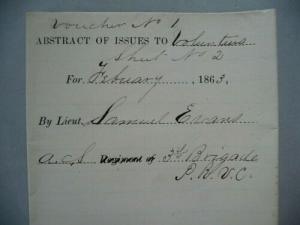 Voucher No 1
ABSTRACT OF ISSUES TO Volunteers
Sheet No 2
For February, 1863,
By Lieut. Samuel Evans
A.C.S Regiment of 3d Brigade
P.R.V.C.